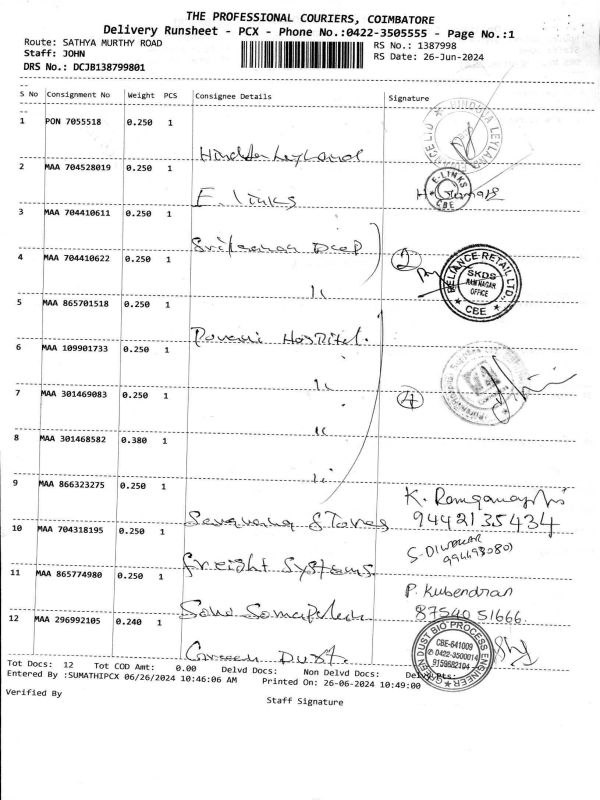 THE PROFESSIONAL COURIERS, COIMBATORE
Delivery Runsheet - PCX - Phone No.:0422-3505555 - Page No.:1
Route: SATHYA MURTHY ROAD RS No.: 1387998
Staff: JOHN RS Date: 26-Jun-2024
DRS No.: DCJB138799801
S No Consignment No Weight PCS Consignee Details Signature
1 PON 7055518 0.250 1
Hinduja Leyland
2 MAA 704528019 0.250 1
E. links E-LINKS CBE
3 MAA 704410611 0.250 1
4 MAA 704410622 0.250 1 2 RELIANCE RETAIL LTD. SKDS RAM NAGAR OFFICE CBE
"
5 MAA 865701518 0.250 1
Hospital.
6 MAA 109901733 0.250 1
"
7 MAA 301469083 0.250 1 4
"
8 MAA 301468582 0.380 1
"
9 MAA 866323275 0.250 1 K.
Stores 9442135434
10 MAA 704318195 0.250 1 S-DIWAKAR
freight systems
11 MAA 865774980 0.250 1 P. Kubendran
Soho 87540 51666
12 MAA 296992105 0.240 1
Green Dust. GREEN DUST BIO PROCESS ENGINEER CBE-641009 0422-3500014 9159682104
Tot Docs: 12 Tot COD Amt: 0.00 Delvd Docs: Non Delvd Docs: Delvd Pts:
Entered By :SUMATHIPCX 06/26/2024 10:46:06 AM Printed On: 26-06-2024 10:49:00
Verified By Staff Signature